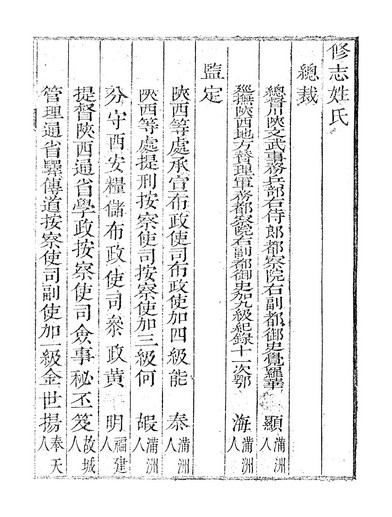 修志姓氏
總裁
總督陝文武事務兵部右侍郎都察院右副都御史覺羅華 顯滿洲人
巡撫陝西地方贊理軍務都察院右副都御史加九級紀錄十一次鄂 海滿洲人
監定
陝西等處承宣布政使司布政使加四級能 泰滿洲人
陝西等處提刑按察使司按察使加三級何 嘏滿洲人
分守西安糧儲布政使司叅政黃 明福建人
提督陝西通省學政按察使司僉事秘丕笈故城人
管理通省驛傳道按察使司副使加一級金世揚奉天人